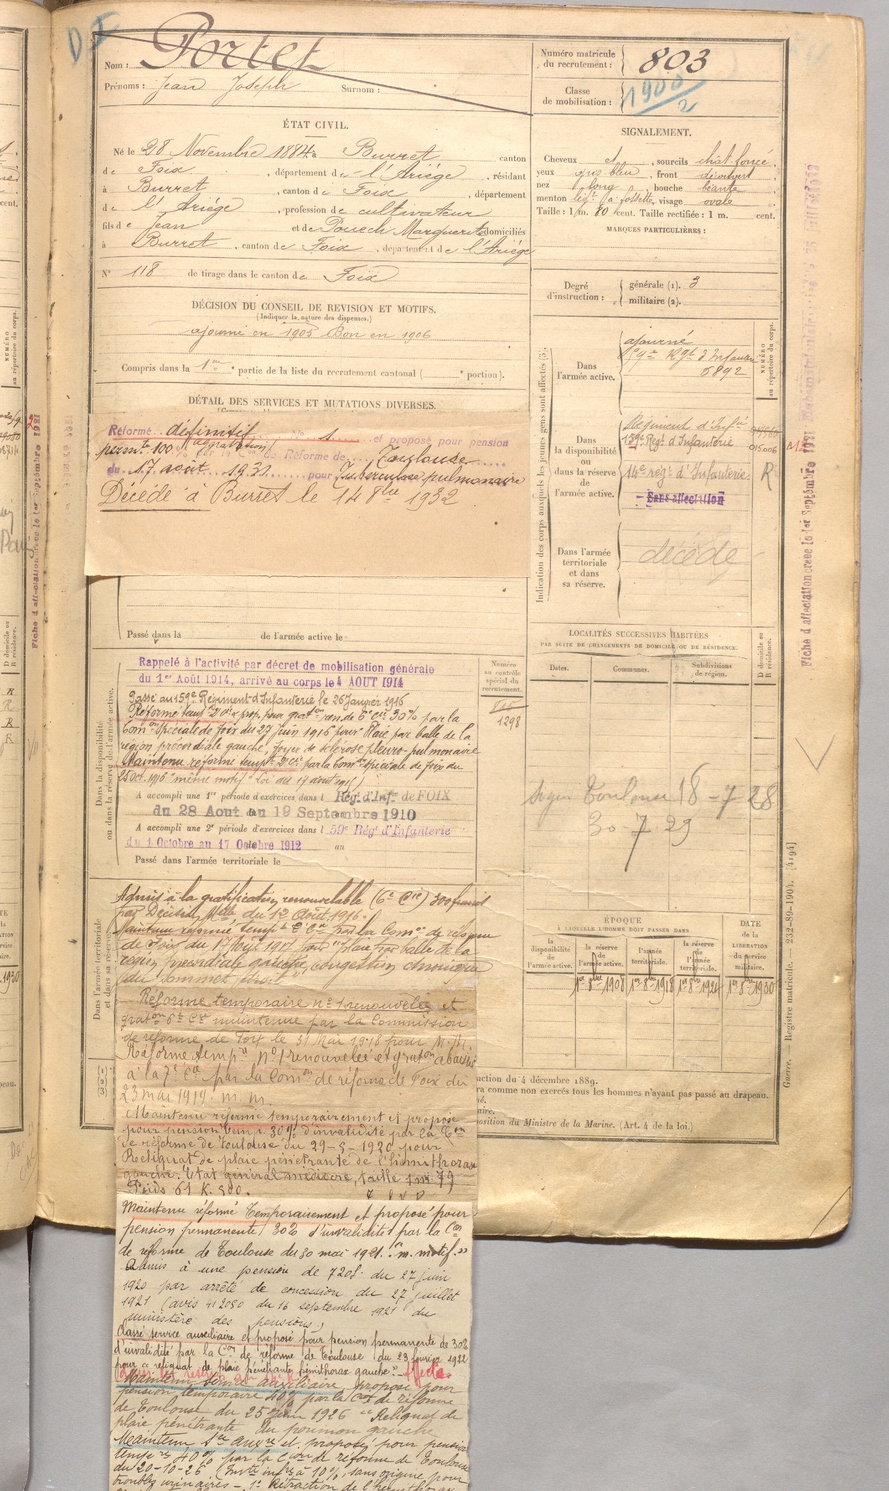 D I
Nom : Portet
Prénoms : Jean Joseph Surnom :
Numéro matricule
du recrutement : 803
Classe
de mobilisation : 1900/2
ÉTAT CIVIL.
Né le 28 Novembre 1884 à Burret, canton
de Foix, département de l'Ariége, résidant
à Burret, canton de Foix, département
de l'Ariége, profession de cultivateur
fils de Jean et de Pouech Marguerite domiciliés
à Burret, canton de Foix, département de l'Ariége
N° 118 de tirage dans le canton de Foix
SIGNALEMENT.
Cheveux , sourcils chat. foncé
yeux gris bleu, front découvert
nez long, bouche béante
menton à fossette, visage ovale
Taille : 1 m. 80 cent. Taille rectifiée : 1 m. cent.
MARQUES PARTICULIÈRES :
Degré
d'instruction :
générale (1). 3
militaire (2).
DÉCISION DU CONSEIL DE REVISION ET MOTIFS.
(Indiquer la nature des dispenses.)
ajourné en 1905 Bon en 1906
Compris dans la 1re partie de la liste du recrutement cantonal ( portion).
DÉTAIL DES SERVICES ET MUTATIONS DIVERSES.
Réforme définitif 1 et proposé pour pension
permte 100 % de Réforme de Toulouse
du 17 août 1931 pour Tuberculose pulmonaire
Décédé à Burret le 14 8bre 1932
Indication des corps auxquels les jeunes gens sont affectés (3).
Dans
l'armée active.
ajourné
59e Régt d'Infanterie
6892
NUMÉRO
au répertoire du corps.
Dans
la disponibilité
ou dans
la réserve
de
l'armée active.
Régiment d'Infie
159e Rég. d'Infanterie
015006
14e rég. d'Infanterie
R
Sans affectation
Dans l'armée
territoriale
et dans
sa réserve.
décédé
Fiche d'affectation créée le 1er Septembre 1921
Passé dans la de l'armée active le
LOCALITÉS SUCCESSIVES HABITÉES
PAR SUITE DE CHANGEMENTS DE DOMICILE OU DE RÉSIDENCE.
Dates. Communes. Subdivisions
de région.
D domicile ou
R résidence.
Toulouse 18-7 28
30-7 29
Dans la disponibilité
ou dans la réserve de l'armée active.
Rappelé à l'activité par décret de mobilisation générale
du 1er Août 1914, arrivé au corps le 4 AOUT 1914
Passé au 159e Régiment d'Infanterie le 26 Janvier 1916
Réformé tempre n°1 et prop. pour graton ren. de 6e Cie 30% par la
Comon Spéciale de foix du 27 juin 1916 pour Plaie par balle de la
région précordiale gauche, foyer de sclérose pleuro-pulmonaire
Maintenu réformé tempre n°1 par la Comon Spéciale de foix du
25 Oct. 1916 "même motif"
Numéro
au contrôle
spécial du
recrutement.
1298
A accompli une 1re période d'exercices dans l Rég. d'Inf. de FOIX
du 28 Aout au 19 Septembre 1910
A accompli une 2e période d'exercices dans l 59e Rég' d'Infanterie
du 1 Octobre au 17 Octobre 1912 au
Passé dans l'armée territoriale le
Dans l'armée territoriale
et dans sa réserve.
Admis à la gratification renouvelable (6e Cie) 300 francs
par Décision Mlle du 1er Août 1916.
Maintenu réformé tempre par la Comon de réforme
de Foix du 1917 pour "plaie par balle de la
région précordiale gauche, congestion chronique
du sommet droit"
Réforme temporaire n° 1 renouvelée et
graton 6e Cie maintenue par la Commission
de réforme de Foix le 31 Mai 1918 pour M. M.
Réforme tempre N° 1 renouvelée et graton abaissée
à la 7e Cie par la Comon de réforme de Foix du
23 mai 1919. m. m.
Maintenu réformé temporairement et proposé
pour pension temp. 30% d'invalidité par la Con
de réforme de Toulouse du 29-5-1920 pour
Reliquat de plaie pénétrante de l'hémithorax
gauche. État général médiocre, taille 1m 79
Poids 61 K. 500.
Maintenu réformé Temporairement et proposé pour
pension permanente 30% d'invalidité par la Con
de réforme de Toulouse du 30 mai 1921. "m. motif."
Admis à une pension de 720f. du 27 juin
1920 par arrêté de concession du 27 juillet
1921 (avis 412050 du 16 septembre 1921 du
ministère des pensions)
Classé service auxiliaire et proposé pour pension permanente de 30%
d'invalidité par la Con de réforme de Toulouse du 23 février 1922
pour "reliquat de plaie pénétrante hémithorax gauche"
Maintenu service auxiliaire proposé pour
pension temporaire 40% par la Con de réforme
de Toulouse du 25 1926 "Reliquat de
plaie pénétrante du poumon gauche
Maintenu Sce Auxre et proposé pour pension
tempre 40% par la Con de réforme de Toulouse
du 20-10-26. à 10% sans origine pour
troubles urinaires - 1° Rétraction de l'hémithorax
ÉPOQUE
À LAQUELLE L'HOMME DOIT PASSER DANS
la
disponibilité
de
l'armée active.
la réserve
de
l'armée active.
l'armée
territoriale.
la réserve
de
l'armée
territoriale.
DATE
de la
LIBÉRATION
du service
militaire.
1er 8bre 1908 1er 8bre 1918 1er 8bre 1924 1er 8bre 1930
Guerre. — Registre matricule. — 232-89-1904. [4194]
uction du 4 décembre 1889.
ra comme non exercés tous les hommes n'ayant pas passé au drapeau.
position du Ministre de la Marine. (Art. 4 de la loi.)